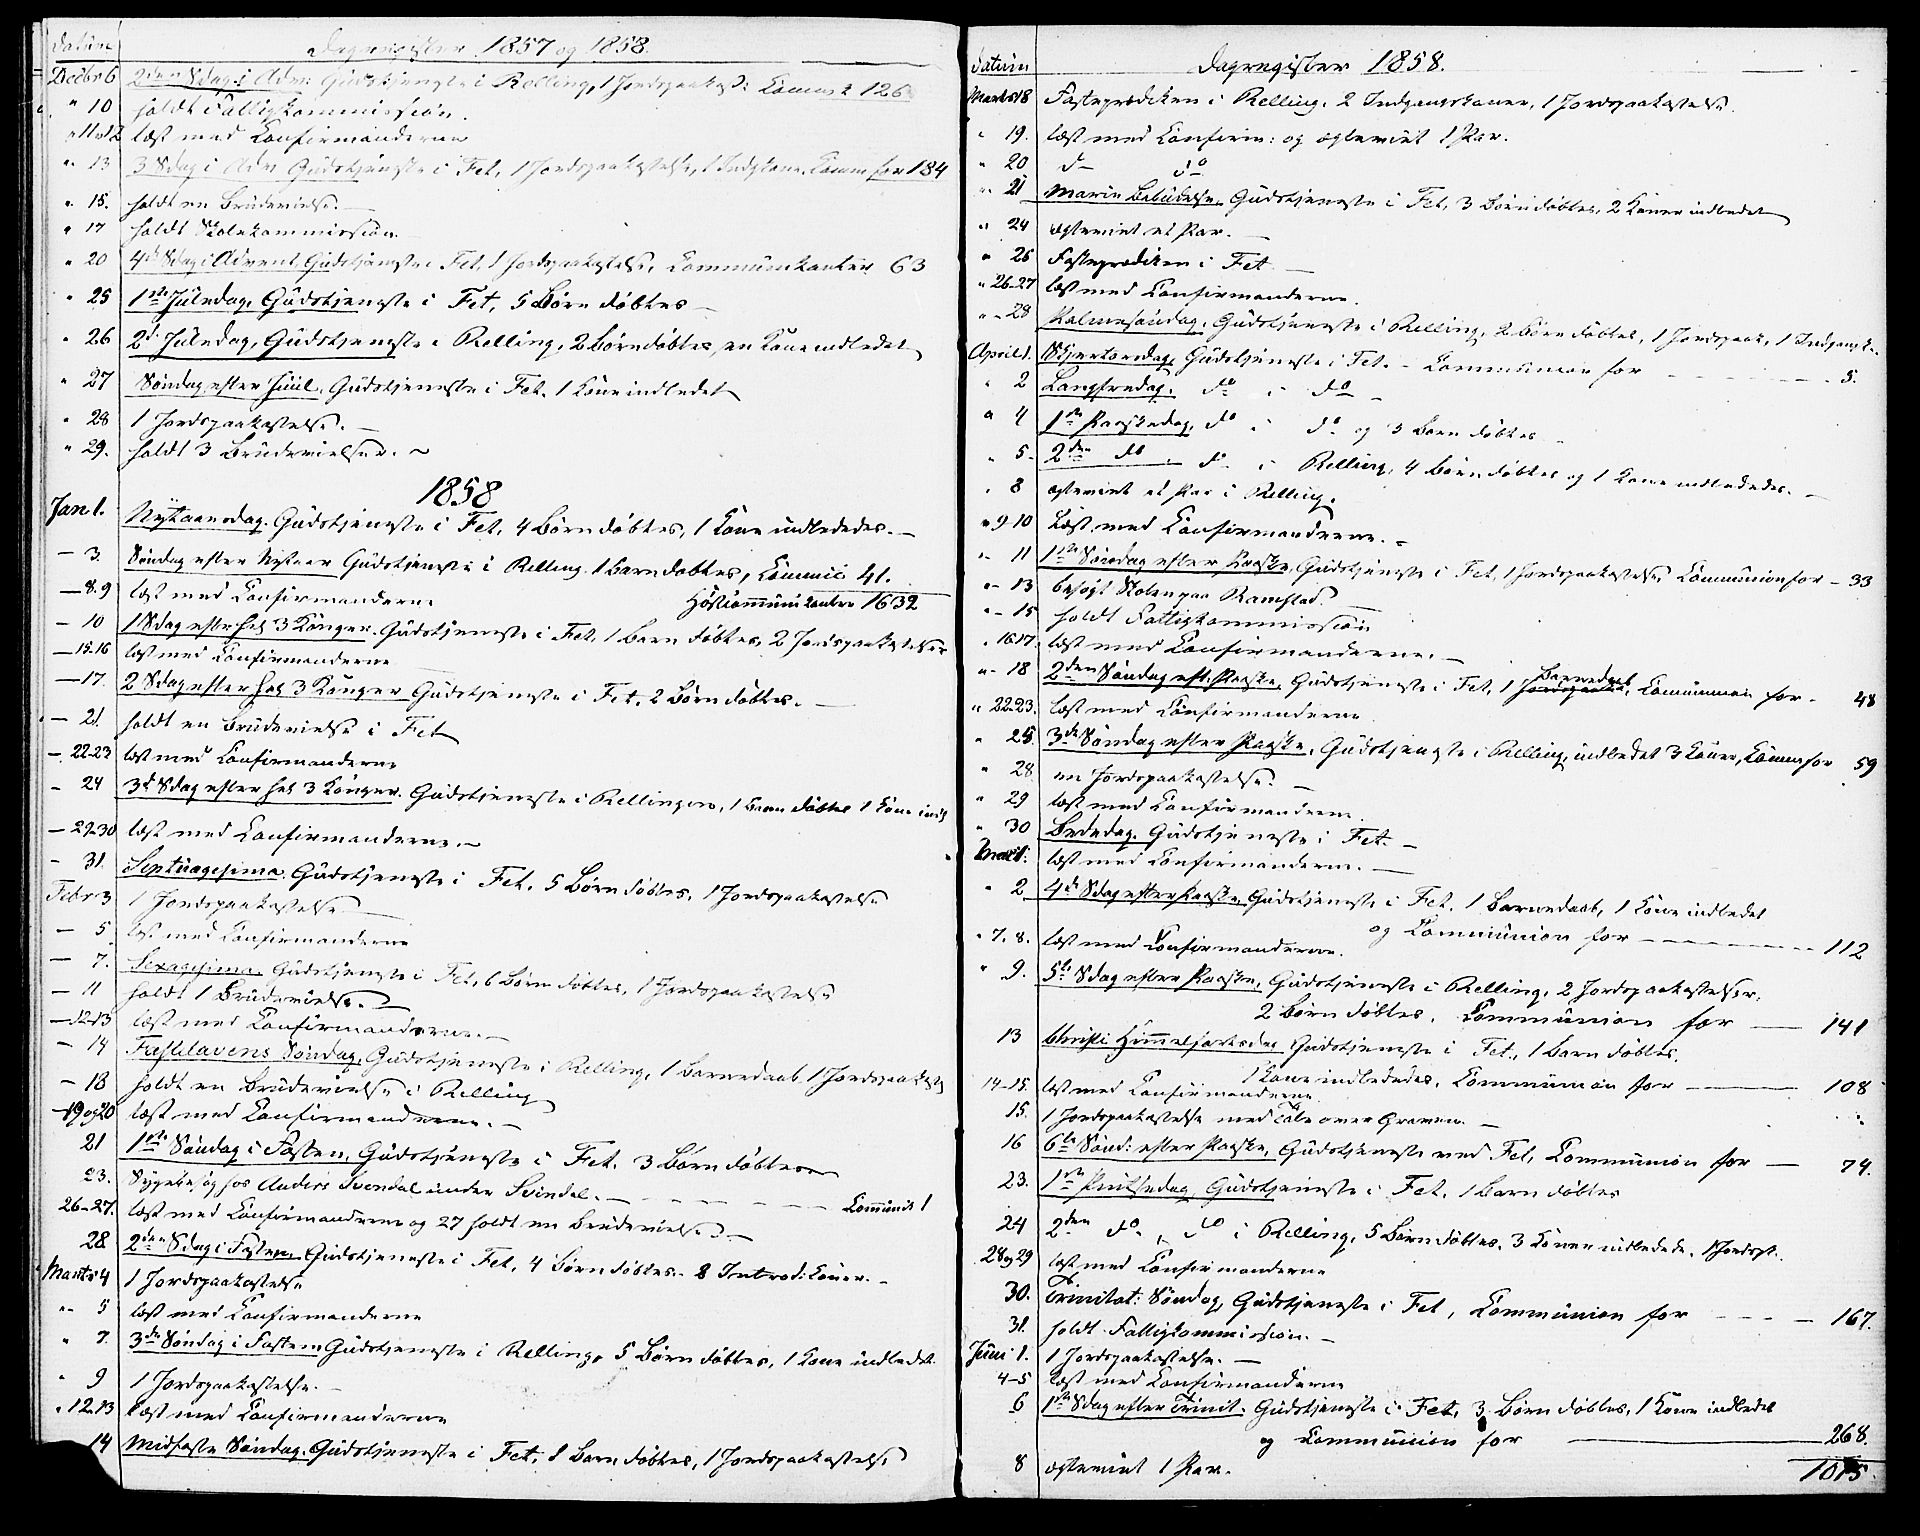 Datum
Dagregister 1857 og 1858.
Decbr 6 2den Sdag i Adv: Gudstjeneste i Relling, 1 Jordspaakast: Commun: 126
" 10 holdt Fattigkommission.
" 11 12 læst med Confirmanderne
" 13 3 Sdag i Adv Gudstjeneste i Fet, 1 Jordspaakastelse, 1 Indgkone, Comm for 184
" 15. holdt en Brudevielse. —
" 17 holdt Skolekommission. —
" 20 4de Sdag i Advent, Gudstjeneste i Fet, 1 Jordspaakastelse, Communikanter 63
" 25 1ste Juledag, Gudstjeneste i Fet, 5 Børn døbtes —
" 26 2d. Juledag, Gudstjeneste i Relling, 2 Børn døbtes, en Kone indledet
" 27 Søndag efter Juul, Gudstjeneste i Fet, 1 Kone indledet
" 28 1 Jordspaakastelse. —
" 29. holdt 3 Brudevielser. —
1858
Jan 1. Nytaarsdag. Gudstjeneste i Fet, 4 Børn døbtes, 1 Kone indlededes. —
— 3. Søndag efter Nytaar Gudstjeneste i Relling 1 Barn døbtes, Commu: 41.
— 8. 9 læst med Confirmanderne 1632
— 10 1 Sdag efter hel 3 Konger. Gudstjeneste i Fet. 1 Barn døbtes, 2 Jordspaakastelser
— 15-16 læst med Confirmanderne
— 17. 2 Sdag efter hel 3 Konger Gudstjeneste i Fet, 2 Børn døbtes. —
— 21. holdt en Brudevielse i Fet
— 22-23 læst med Confirmanderne
— 24 3d Sdag efter hel 3 Konger. Gudstjeneste i Rellingen, 1 Barn døbtes 1 Kone indl
— 29-30 læst med Confirmanderne. —
— 31. Septuagesima. Gudstjeneste i Fet. 5 Børn døbtes, 1 Jordspaakastelse
Febr 3 1 Jordspaakastelse —
— 5 læst med Confirmanderne
— 7. Sexagesima. Gudstjeneste i Fet, 6 Børn døbtes, 1 Jordspaakastelse
— 11 holdt 1 Brudevielse. —
— 12-13 læst med Confirmanderne. —
— 14 Fastelavens Søndag, Gudstjeneste i Relling, 1 Barnedaab, 1 Jordspaakast
— 18 holdt en Brudevielse i Relling
— 19 og 20 læst med Confirmanderne. —
21 1ste Søndag i Fasten, Gudstjeneste i Fet. 3 Børn døbtes
23. Sygebesøg hos Anders Svendal under Svindal. — Communik 1
26-27. læst med Confirmanderne og 27 holdt en Brudevielse. —
28 2den Sdag i Fasten, Gudstjeneste i Fet, 4 Børn døbtes. 8 Introd: Koner. —
Marts 4 1 Jordspaakastelse
" 5 læst med Confirmanderne
" 7. 3de Søndag i Fasten Gudstjeneste i Relling, 5 Børn døbtes, 1 Kone indledet.
" 9 1 Jordspaakastelse. —
" 12-13 læst med Confirmanderne
14 Midfaste Søndag. Gudstjeneste i Fet, 1 Barn døbtes, 1 Jordspaakastelse
Datum
Dagregister 1858.
Marts 18 Fasteprædiken i Relling, 2 Indgangskoner, 1 Jordspaakastelse
" 19. læst med Confirm: og ægteviet 1 Par.
" 20 d— do
" 21 Mariæ Bebudelse, Gudstjeneste i Fet, 3 Børn døbtes, 2 Koner indledet
" 24 ægteviet et Par. —
" 25 Fasteprædiken i Fet —
" 26-27 læst med Confirmanderne.
" 28 Palmesøndag, Gudstjeneste i Relling, 2 Børn døbtes, 1 Jordspaak, 1 Indgangsk.
April 1. Skjertorsdag, Gudstjeneste i Fet. — Communion for — 5.
" 2 Langfredag. do i do —
" 4 1ste Paaskedag, do i do og 3 Børn døbtes —
" 5. 2den do. do. i Relling, 4 Børn døbtes og 1 Kone indlededes. —
" 8 ægteviet et Par i Relling.
" 9-10 læst med Confirmanderne. —
" 11 1ste Søndag efter Paaske, Gudstjeneste i Fet, 1 Jordspaakastelse Communion for — 33
" 13 besøgt Skolen paa Ramstad.
" 15 holdt Fattigkommission
" 16 17. læst med Confirmanderne. —
" 18 2den Søndag eft. Paaske, Gudstjeneste i Fet, 1 Barnedaab, Communion for — 48
" 22-23. læst med Confirmanderne
" 25. 3de Søndag efter Paaske, Gudstjeneste i Relling, indledet 3 Koner, Commu for 59
" 28 en Jordspaakastelse. —
" 29 læst med Confirmanderne.
" 30 Bededag. Gudstjeneste i Fet. —
Mai 1. læst med Confirmanderne. —
" 2 4de Sdag efter Paaske Gudstjeneste i Fet. 1 Barnedaab, 1 Kone indledet
og Communion for — 112
" 7. 8. læst med Confirmanderne.
" 9. 5te Sdag efter Paaske, Gudstjeneste i Relling, 2 Jordspaakastelser.
2 Børn døbtes. Communion for — 141
13 Christi Himmelfartsdag Gudstjeneste i Fet, 1 Barn døbtes.
1 Kone indlededes. Communion for — 108
14-15. læst med Confirmanderne
15. 1 Jordspaakastelse med Tale over Graven. —
16 6te Sønd: efter Paaske, Gudstjeneste ved Fet, Communion for — 74.
23. 1ste Pintsedag Gudstjeneste i Fet, 1 Barn døbtes
24 2den do. do i Relling, 5 Børn døbtes. 3 Koner indledede. 1 Jordsp.
28 og 29 læst med Confirmanderne
30. Trinitat: Søndag, Gudstjeneste i Fet, Communion for — 167.
31. holdt Fattigkommission. —
Juni 1. 1 Jordspaakastelse. —
4-5 læst med Confirmanderne
6 1ste Sdag efter Trinit. Gudstjeneste i Fet, 3 Børn døbtes, 1 Kone indledet
og Communion for — 268.
8 ægteviet 1 Par. 1015